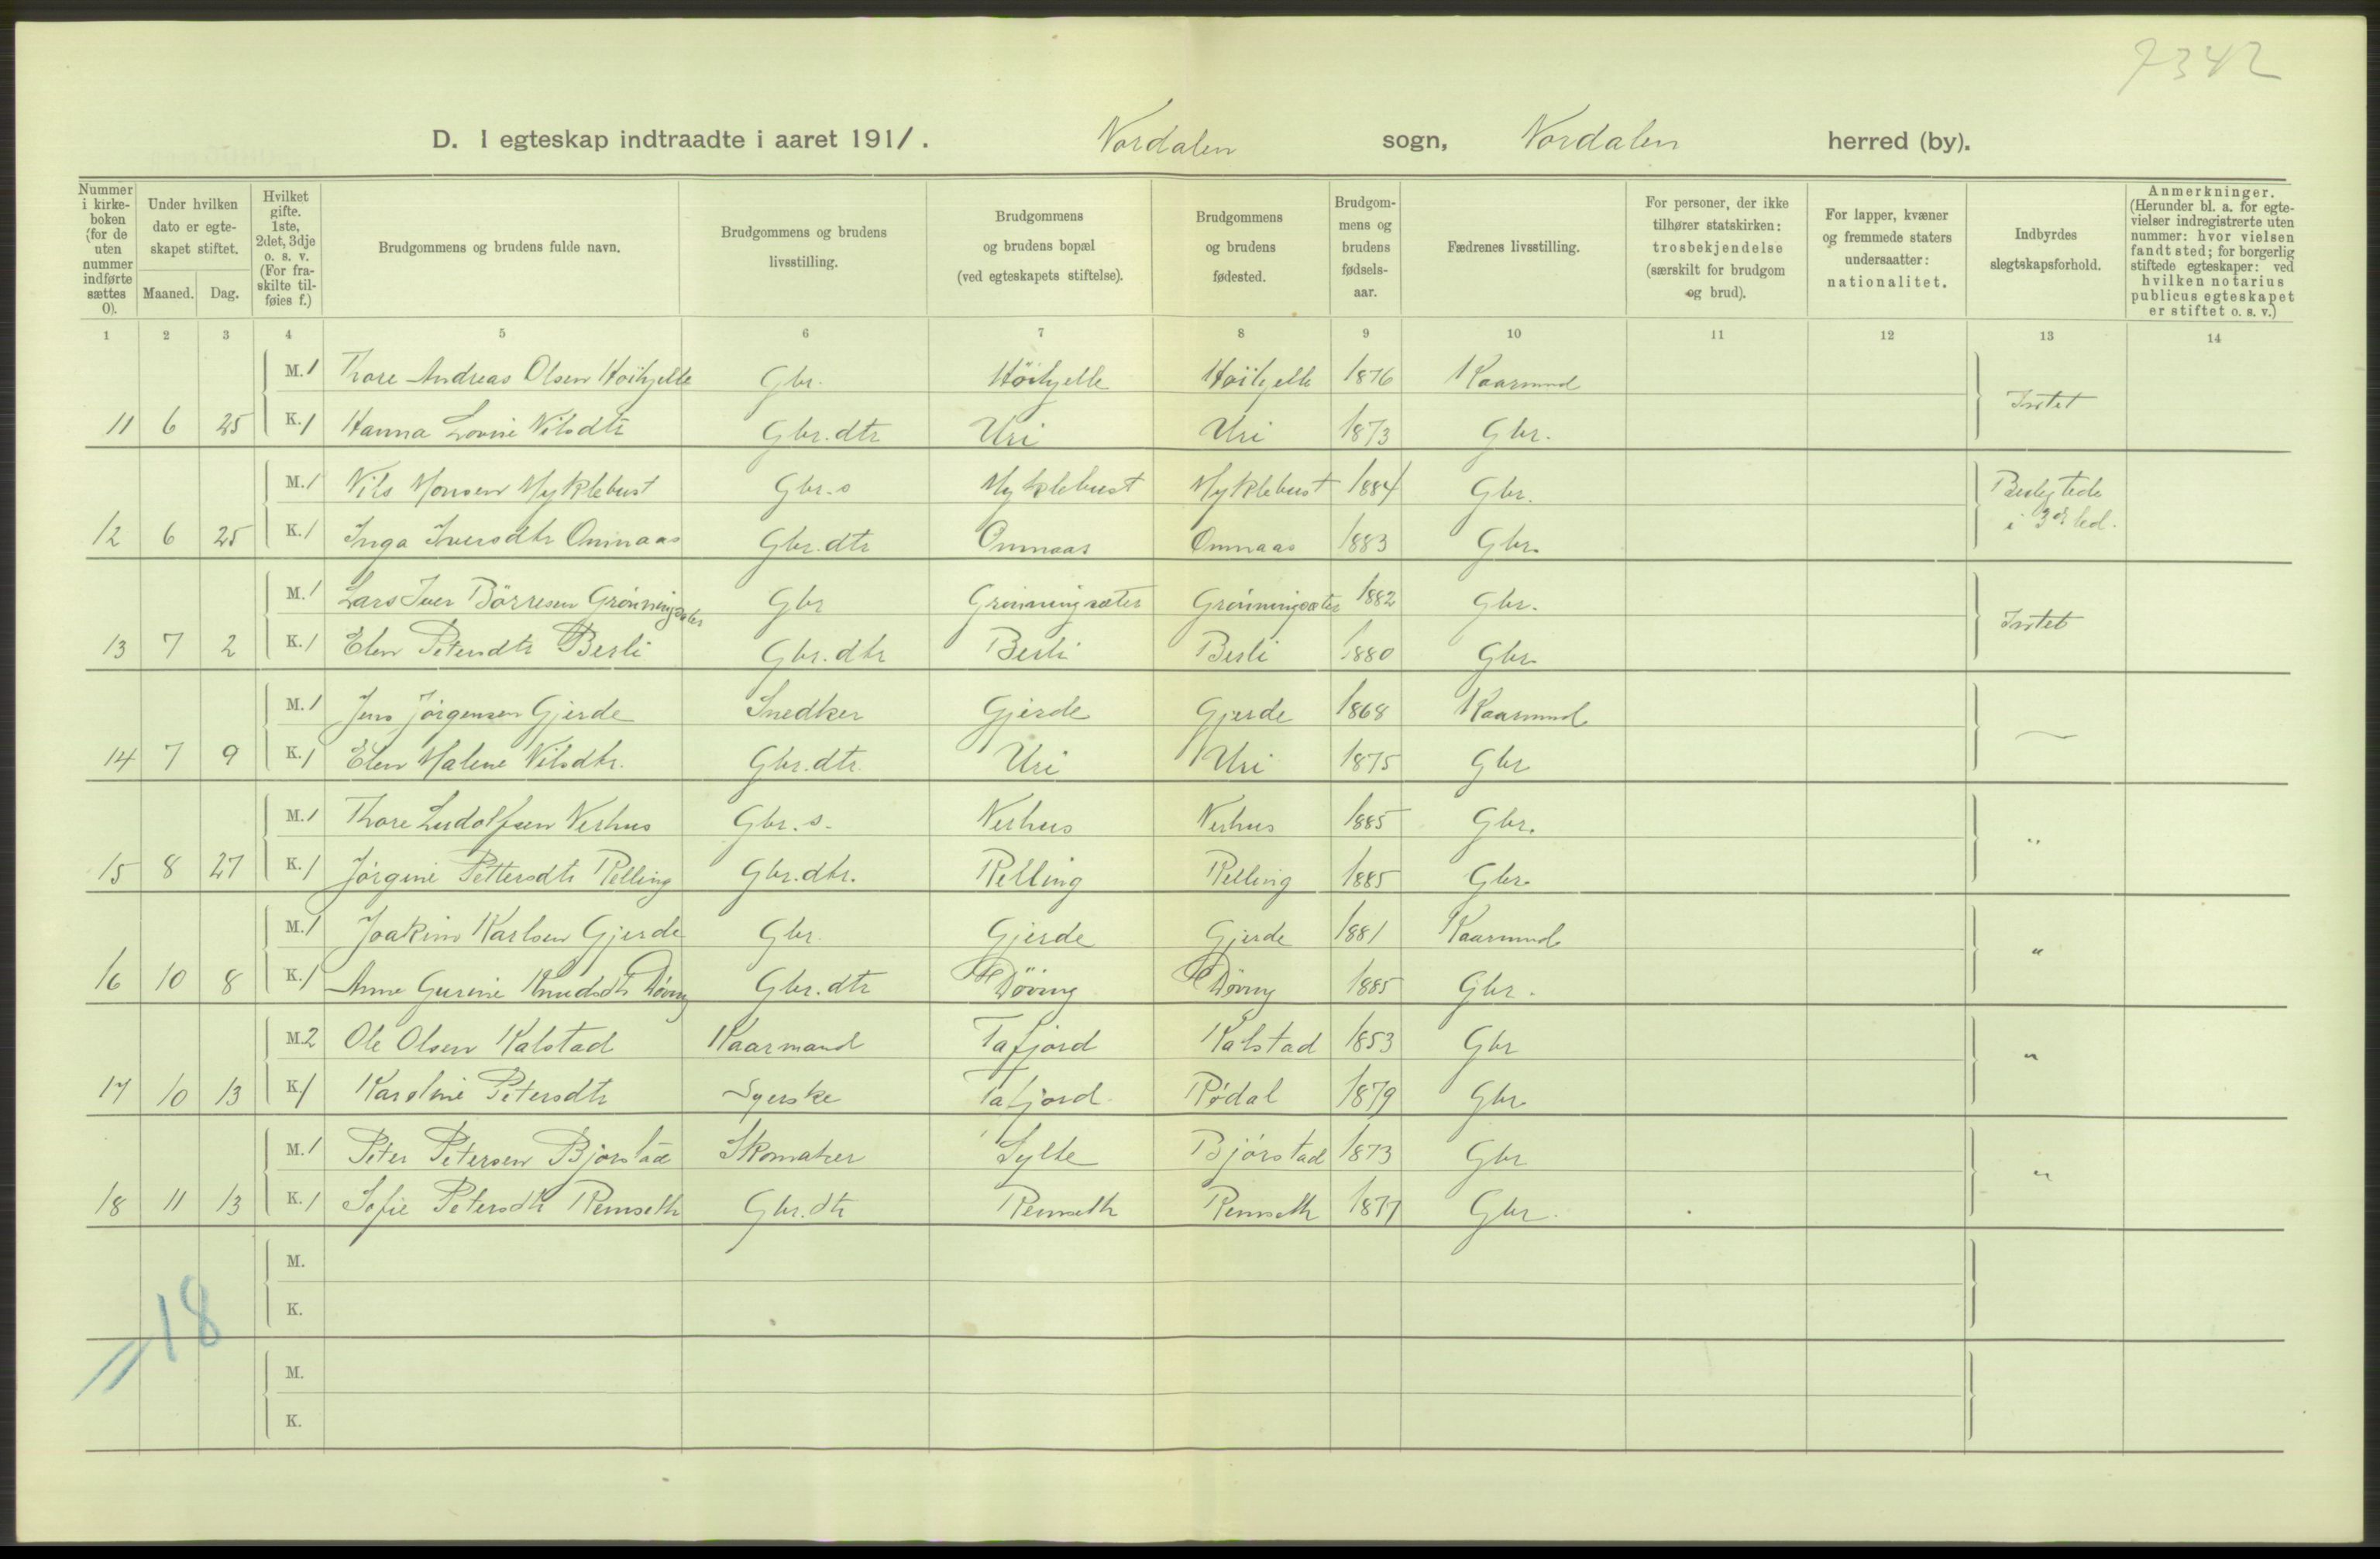 7342
D. I egteskap indtraadte i aaret 1911. Nordalen sogn, Nordalen herred (by).
Nummer i kirke-boken (for de uten nummer indførte sættes 0).
Under hvilken dato er egte-skapet stiftet.
Maaned. Dag.
Hvilket gifte. 1ste, 2det, 3dje o. s. v. (For fra-skilte til-føies f.)
Brudgommens og brudens fulde navn.
Brudgommens og brudens livsstilling.
Brudgommens og brudens bopæl (ved egteskapets stiftelse).
Brudgommens og brudens fødested.
Brudgom-mens og brudens fødsels-aar.
Fædrenes livsstilling.
For personer, der ikke tilhører statskirken: trosbekjendelse (særskilt for brudgom og brud).
For lapper, kvæner og fremmede staters undersaatter: nationalitet.
Indbyrdes slegtskapsforhold.
Anmerkninger. (Herunder bl. a. for egte-vielser indregistrerte uten nummer: hvor vielsen fandt sted; for borgerlig stiftede egteskaper: ved hvilken notarius publicus egteskapet er stiftet o. s. v.)
1 2 3 4 5 6 7 8 9 10 11 12 13 14
M. 1 Thore Andreas Olsen Høihjelle Gbr. Höihjelle Höihjelle 1876 Kaarmand
11 6 25 K. 1 Hanna Lovise Nilsdtr Gbr.dtr Uri Uri 1873 Gbr. Intet
M. 1 Nils Monsen Myklebust Gbr.s Myklebust Myklebust 1884 Gbr. Beslegtede
12 6 25 K. 1 Inga Iversdtr Ommaas Gbr.dtr Ommaas Ommaas 1883 Gbr. i 3die led.
M. 1 Lars Iver Börresen Grønningsæter Gbr Grønningsæter Grønningsæter 1882 Gbr.
13 7 2 K. 1 Elen Petersdtr Berli Gbr.dtr Berli Berli 1880 Gbr. Intet
M. 1 Jens Jörgensen Gjerde Snedker Gjerde Gjerde 1868 Kaarmand
14 7 9 K. 1 Elen Malene Nilsdtr. Gbr.dtr. Uri Uri 1875 Gbr —
M. 1 Thore Ludolfsen Nerhus Gbr.s. Nerhus Nerhus 1885 Gbr.
15 8 27 K. 1 Jørgine Pettersdtr Relling Gbr.dtr. Relling Relling 1885 Gbr. "
M. 1 Joakim Karlsen Gjerde Gbr. Gjerde Gjerde 1881 Kaarmand
16 10 8 K. 1 Anne Gurine Knudsdtr Döving Gbr.dtr Döving Döving 1885 Gbr. "
M. 2 Ole Olsen Kalstad Kaarmand Tafjord Kalstad 1853 Gbr
17 10 13 K. 1 Karoline Petersdtr Syerske Tafjord Rødal 1879 Gbr "
M. 1 Peter Petersen Bjørstad Skomaker Sylte Bjørstad 1873 Gbr
18 11 13 K. 1 Sofie Petersdtr Remseth Gbr.dtr Remseth Remseth 1877 Gbr. "
M.
K.
18
M.
K.